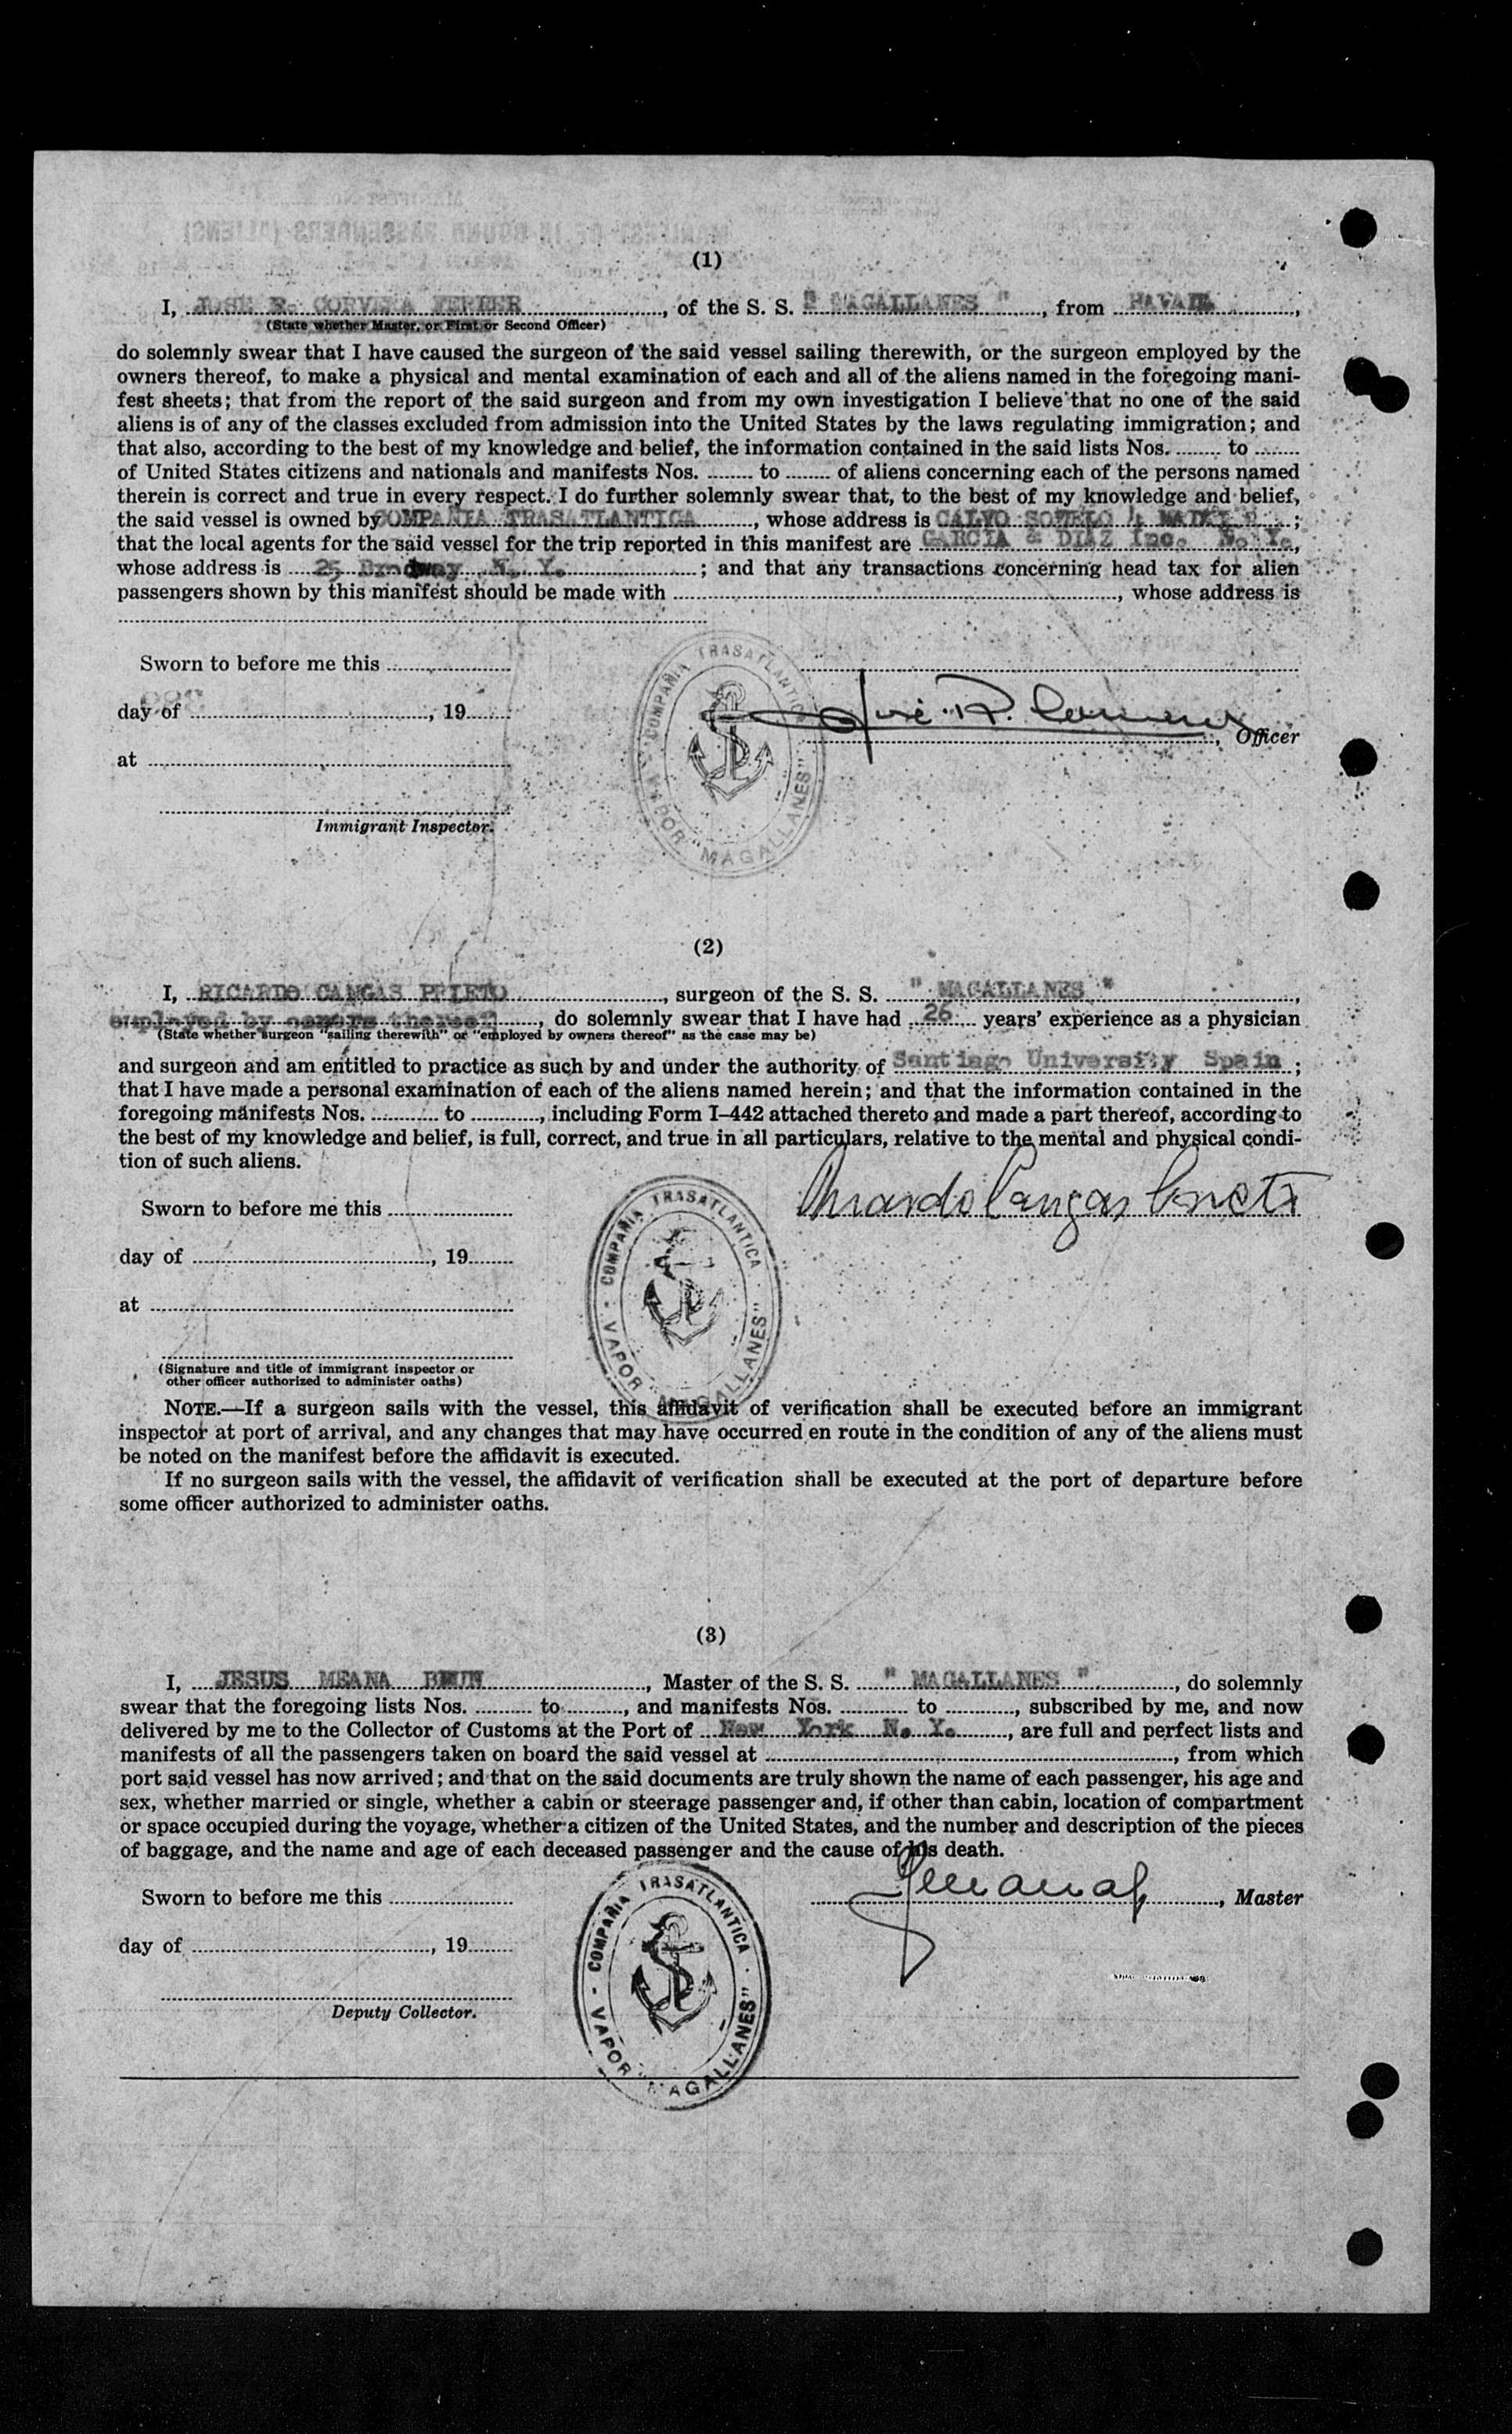 (1)
I, JOSE R. CORVERA FERRER, of the S. S. " MAGALLANES ", from HAVANA,
(State whether Master, or First or Second Officer)
do solemnly swear that I have caused the surgeon of the said vessel sailing therewith, or the surgeon employed by the
owners thereof, to make a physical and mental examination of each and all of the aliens named in the foregoing mani-
fest sheets; that from the report of the said surgeon and from my own investigation I believe that no one of the said
aliens is of any of the classes excluded from admission into the United States by the laws regulating immigration; and
that also, according to the best of my knowledge and belief, the information contained in the said lists Nos. ........ to ........
of United States citizens and nationals and manifests Nos. ........ to ........ of aliens concerning each of the persons named
therein is correct and true in every respect. I do further solemnly swear that, to the best of my knowledge and belief,
the said vessel is owned by COMPAÑIA TRASATLANTICA, whose address is CALVO SOTELO 4 MADRID;
that the local agents for the said vessel for the trip reported in this manifest are GARCIA & DIAZ Inc. N. Y.,
whose address is 25 Brodway N. Y.; and that any transactions concerning head tax for alien
passengers shown by this manifest should be made with ........, whose address is
Sworn to before me this ........
COMPAÑIA TRASATLANTICA VAPOR "MAGALLANES"
day of ........, 19........
José R. , Officer
at ........
Immigrant Inspector.
(2)
I, RICARDO CANGAS PRIETO, surgeon of the S. S. " MAGALLANES ",
employed by owners thereof, do solemnly swear that I have had 26 years' experience as a physician
(State whether surgeon "sailing therewith" or "employed by owners thereof" as the case may be)
and surgeon and am entitled to practice as such by and under the authority of Santiago University Spain;
that I have made a personal examination of each of the aliens named herein; and that the information contained in the
foregoing manifests Nos. ........ to ........, including Form I-442 attached thereto and made a part thereof, according to
the best of my knowledge and belief, is full, correct, and true in all particulars, relative to the mental and physical condi-
tion of such aliens.
Ricardo Cangas Prieto
Sworn to before me this ........
COMPAÑIA TRASATLANTICA VAPOR "MAGALLANES"
day of ........, 19........
at ........
(Signature and title of immigrant inspector or
other officer authorized to administer oaths)
NOTE.—If a surgeon sails with the vessel, this affidavit of verification shall be executed before an immigrant
inspector at port of arrival, and any changes that may have occurred en route in the condition of any of the aliens must
be noted on the manifest before the affidavit is executed.
If no surgeon sails with the vessel, the affidavit of verification shall be executed at the port of departure before
some officer authorized to administer oaths.
(3)
I, JESUS MEANA BRUN, Master of the S. S. " MAGALLANES ", do solemnly
swear that the foregoing lists Nos. ........ to ........, and manifests Nos. ........ to ........, subscribed by me, and now
delivered by me to the Collector of Customs at the Port of New York N. Y., are full and perfect lists and
manifests of all the passengers taken on board the said vessel at ........, from which
port said vessel has now arrived; and that on the said documents are truly shown the name of each passenger, his age and
sex, whether married or single, whether a cabin or steerage passenger and, if other than cabin, location of compartment
or space occupied during the voyage, whether a citizen of the United States, and the number and description of the pieces
of baggage, and the name and age of each deceased passenger and the cause of his death.
Sworn to before me this ........
COMPAÑIA TRASATLANTICA VAPOR "MAGALLANES"
, Master
day of ........, 19........
Deputy Collector.